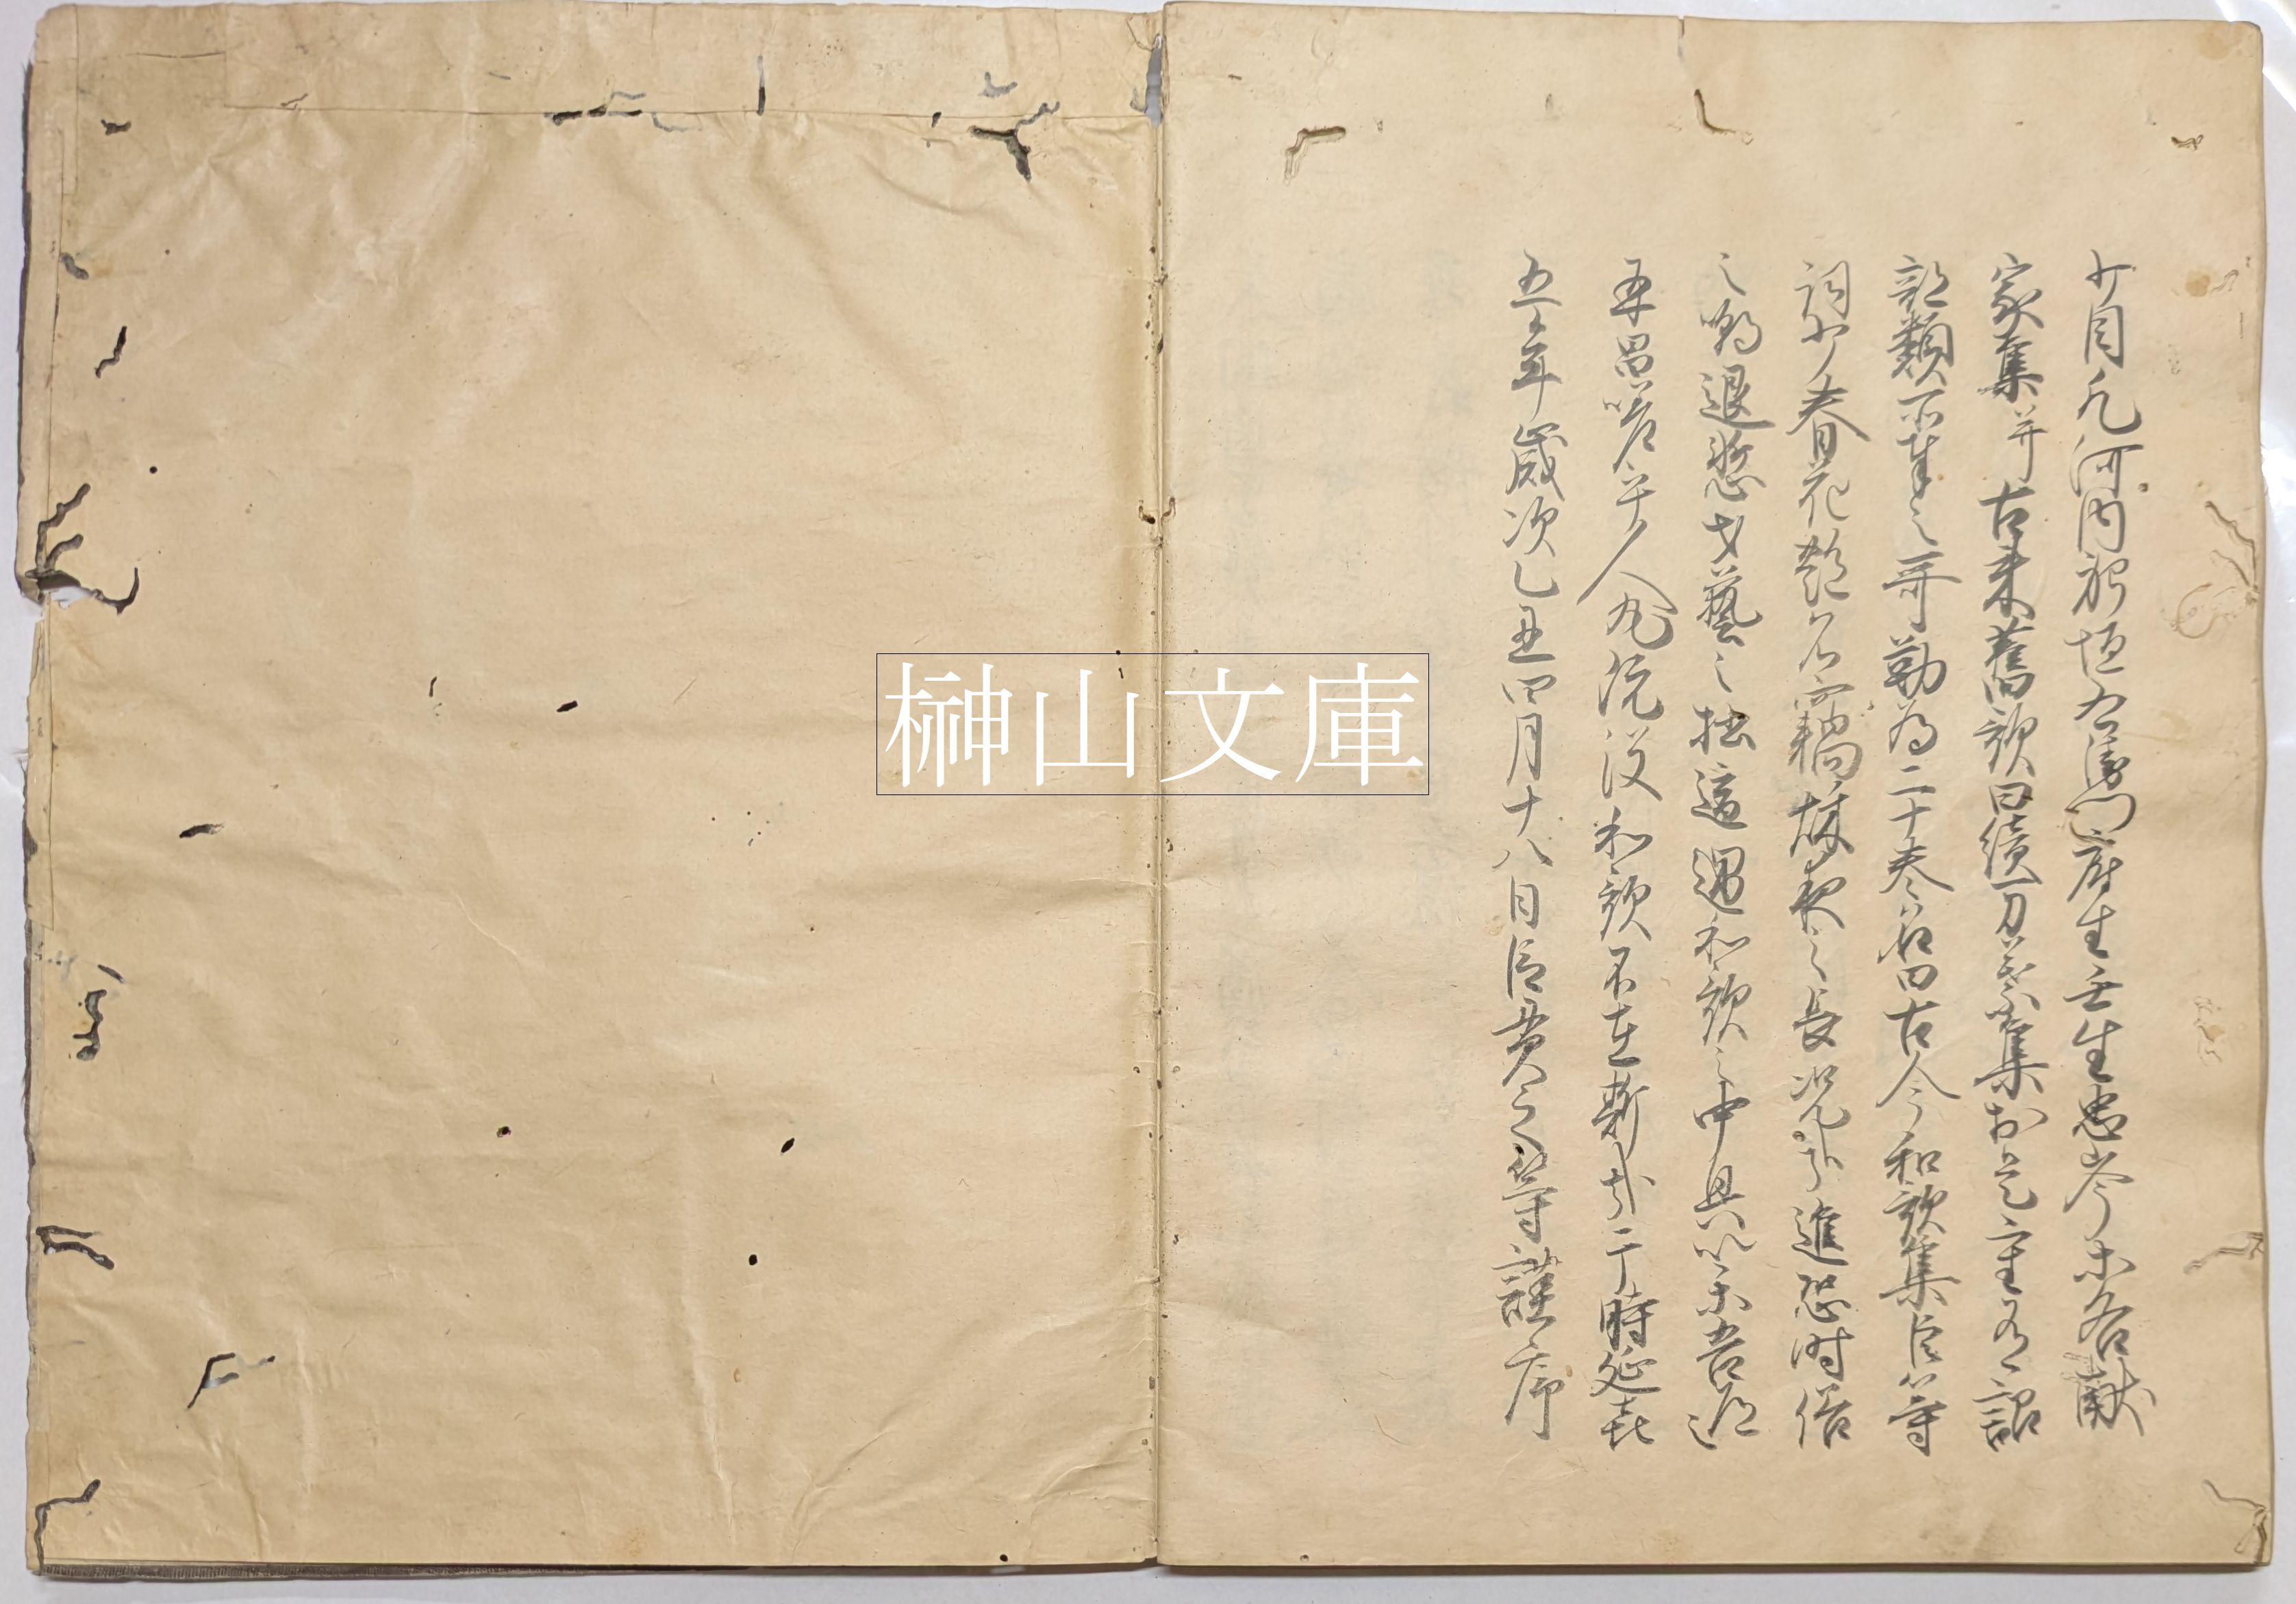 少目凡河内躬恒右衛門府生壬生忠岑等各献
家集并古来舊歌曰續万葉集於是重有詔
部類所奉之哥勒為二十巻名曰古今和歌集臣等
詞少春花之艶名竊秋夜之長況哉進恐時俗
之嘲退慙才藝之拙適遇和歌之中興以楽吾道
再昌嗟乎人丸既没和歌不在斯哉于時延喜
五年歳次乙丑四月十八日臣貫之等謹序
榊山文庫